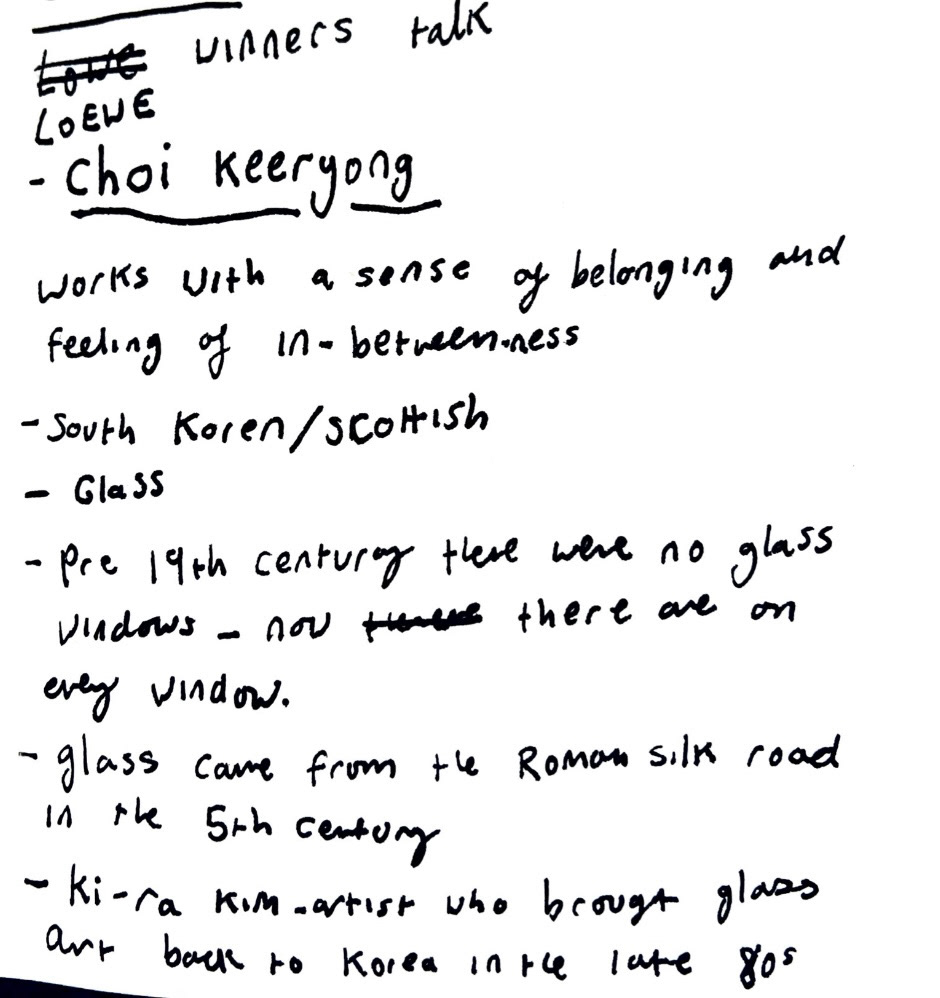 Lowe winners talk
LOEWE
- Choi Keeryong
works with a sense of belonging and
feeling of in-between-ness
- South Koren/Scottish
- Glass
- Pre 19th century there were no glass
windows - now there are on
every window.
- glass came from the Roman silk road
in the 5th century
- Ki-ra Kim - artist who brougt glass
art back to Korea in the late 80s